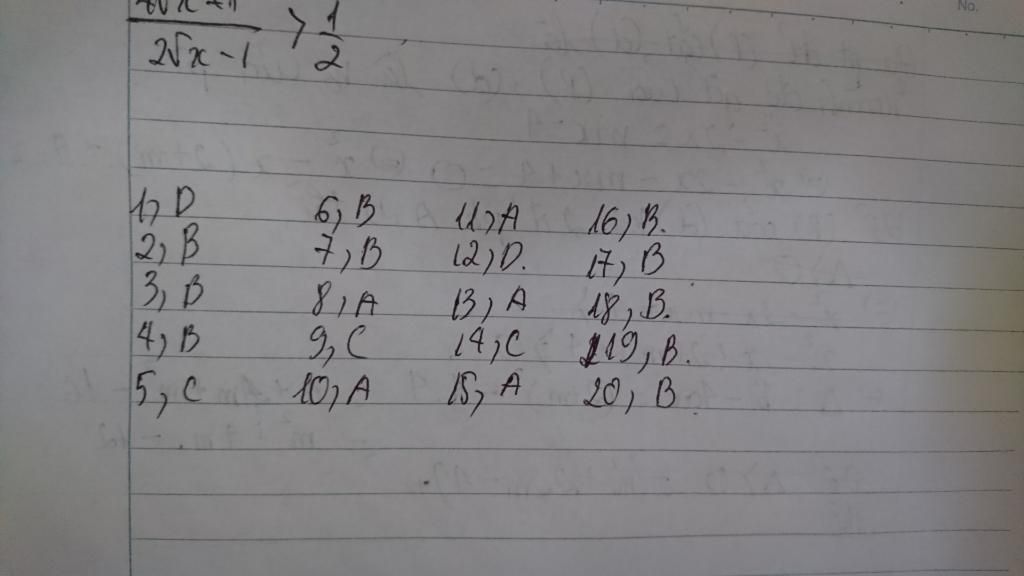 2√x - 1 > 1/2
1, D 6, B 11, A 16, B.
2, B 7, B 12, D. 17, B
3, B 8, A 13, A 18, B.
4, B 9, C 14, C 19, B.
5, C 10, A 15, A 20, B
No.